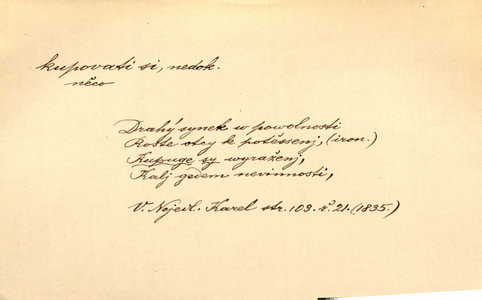 kupovati si, nedok.
něco
Drahý synek w powolnosti
Roste otcy k potěssenj, (iron.)
Kupuge sy wyraženj,
Kalj gedem nevinnosti,
V. Nejedl. Karel str. 103. v. 21. (1835.)